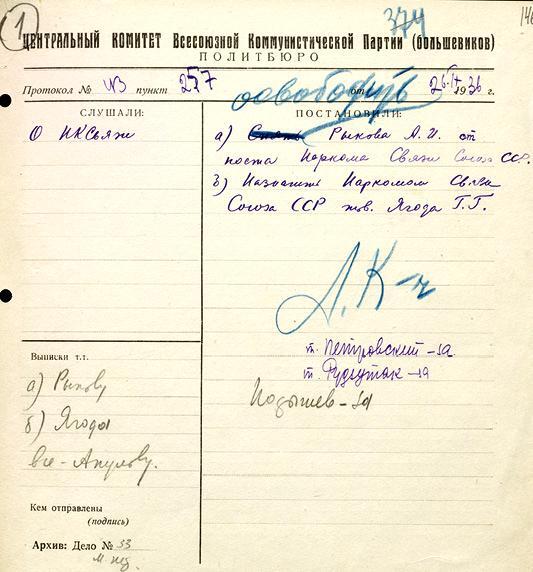 1
374
146
ЦЕНТРАЛЬНЫЙ КОМИТЕТ Всесоюзной Коммунистической Партии (большевиков)
ПОЛИТБЮРО
Протокол № из пункт 257 от 26.IX 1936 г.
освободить
СЛУШАЛИ:
О НКСвязи
ПОСТАНОВИЛИ:
а) Рыкова А. И. от
поста Наркома Связи Союза ССР.
б) Назначить Наркомом Связи
Союза ССР тов. Ягода Г.Г.
Л. К-ч
т. Петровский - за
т. Рудзутак - за
Постышев - за
Выписки т.т.
а) Рыкову
б) Ягода
все - Акулову.
Кем отправлены
(подпись)
Архив: Дело № 53